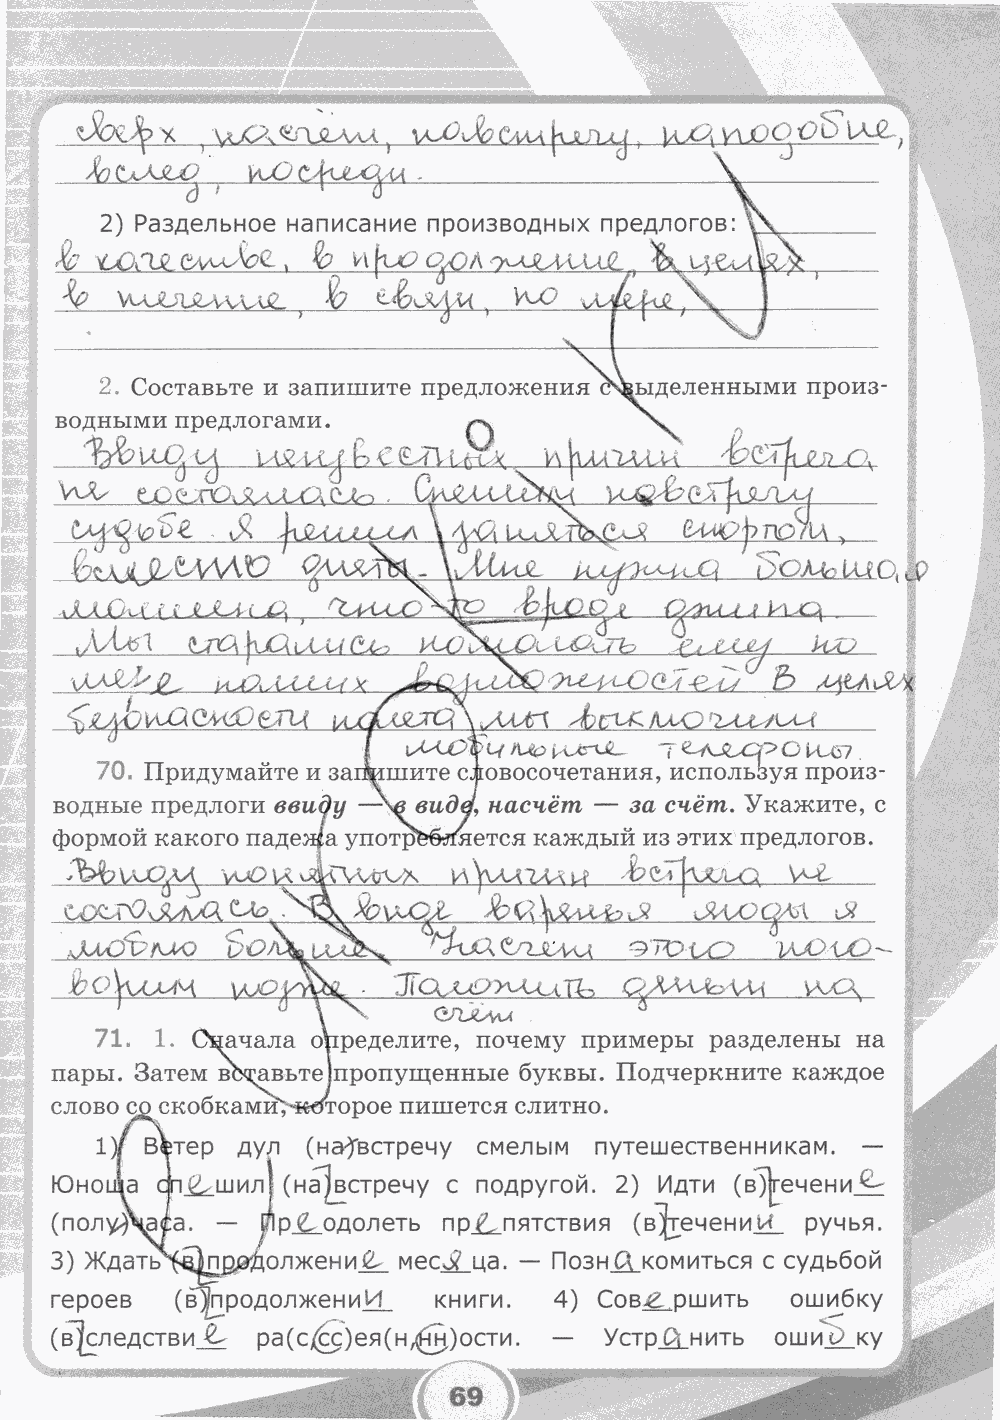 сверх, насчёт, навстречу, наподобие,
вслед, посреди.
2) Раздельное написание производных предлогов:
в качестве, в продолжение, в целях,
в течение, в связи, по мере,
2. Составьте и запишите предложения с выделенными произ-
водными предлогами.
Ввиду неизвестных причин встреча
не состоялась. Спешим навстречу
судьбе. Я решил заняться спортом,
вместо диеты. Мне нужна большая
машина, что-то вроде джипа.
Мы старались помогать ему по
мере наших возможностей В целях
безопасности полета мы выключили
мобильные телефоны.
70. Придумайте и запишите словосочетания, используя произ-
водные предлоги ввиду — в виде, насчёт — за счёт. Укажите, с
формой какого падежа употребляется каждый из этих предлогов.
Ввиду понятных причин встреча не
состоялась. В виде варенья ягоды я
люблю больше. Насчёт этого пого-
ворим позже. Положить деньги на
счёт.
71. 1. Сначала определите, почему примеры разделены на
пары. Затем вставьте пропущенные буквы. Подчеркните каждое
слово со скобками, которое пишется слитно.
1) Ветер дул (на)встречу смелым путешественникам. —
Юноша спешил (на)встречу с подругой. 2) Идти (в)течение
(полу)часа. — Преодолеть препятствия (в)течении ручья.
3) Ждать (в)продолжение месяца. — Познакомиться с судьбой
героев (в)продолжении книги. 4) Совершить ошибку
(в)следствие ра(с,сс)ея(н,нн)ости. — Устранить ошибку
69
РЕШАК.РУ